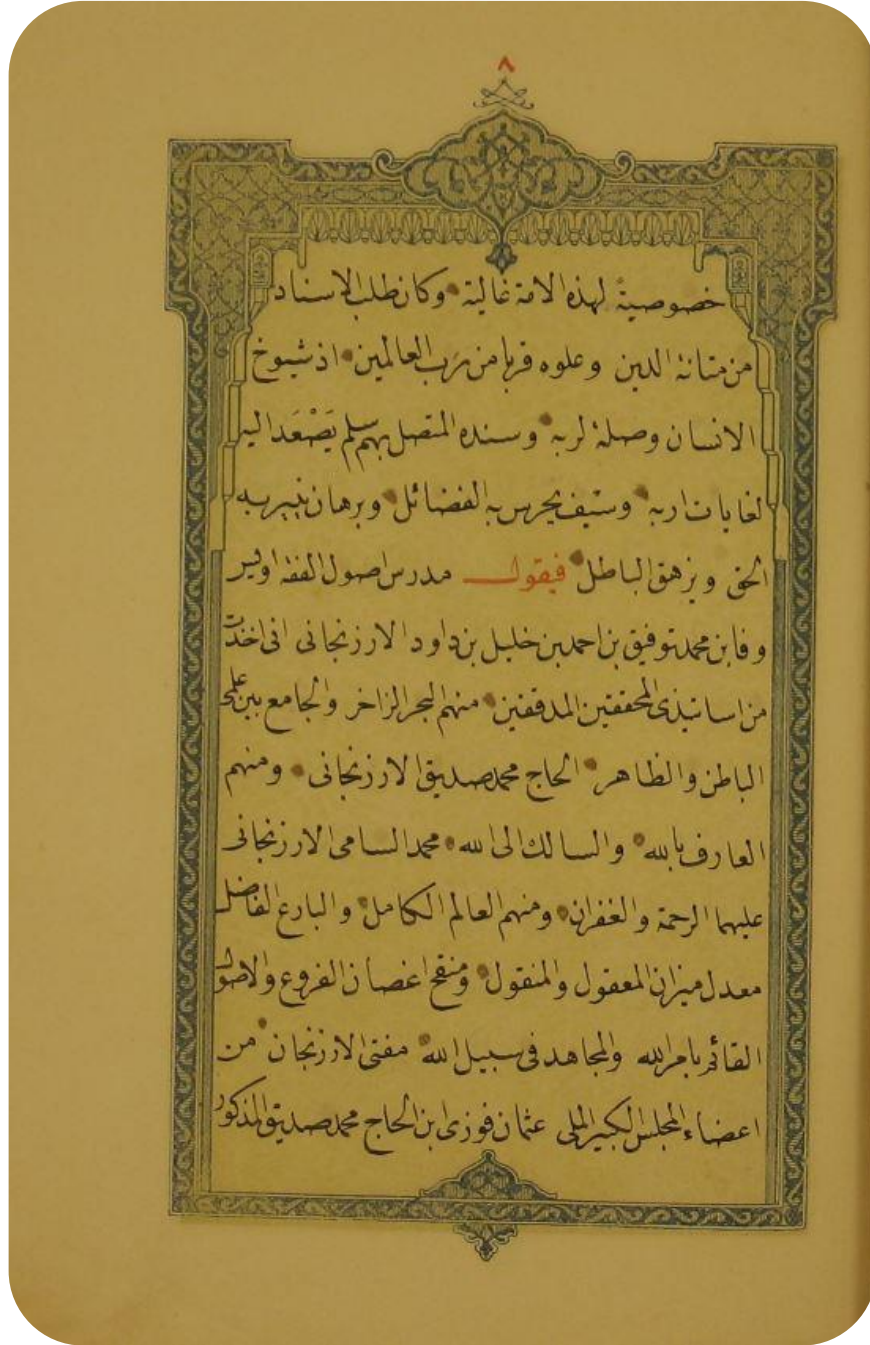 ٨
خصوصية لهذه الامة غالية وكان طلب الاسناد
من متانة الدين وعلوه قربا من رب العالمين اذ شيوخ
الانسان وصلة لربه وسنده المتصل بهم سلم يَصْعَد اليه
لغايات اربه وسيف يحرس به الفضائل وبرهان ينير به
الحق ويزهق الباطل فيقول مدرس اصول الفقه اويس
وفا بن محمد توفيق بن احمد بن خليل بن داود الارزنجانى انى اخذت
من اساتيذى المحققين المدققين منهم البحر الزاخر والجامع بين علمى
الباطن والظاهر الحاج محمد صديق الارزنجانى ومنهم
العارف بالله والسالك الى الله محمد السامى الارزنجانى
عليهما الرحمة والغفران ومنهم العالم الكامل والبارع الفاضل
معدل ميزان المعقول والمنقول ومنقح اغصان الفروع والاصول
القائم بامر الله والمجاهد فى سبيل الله مفتى الارزنجان من
اعضاء المجلس الكبير الملى عثمان فوزى ابن الحاج محمد صديق المذكور